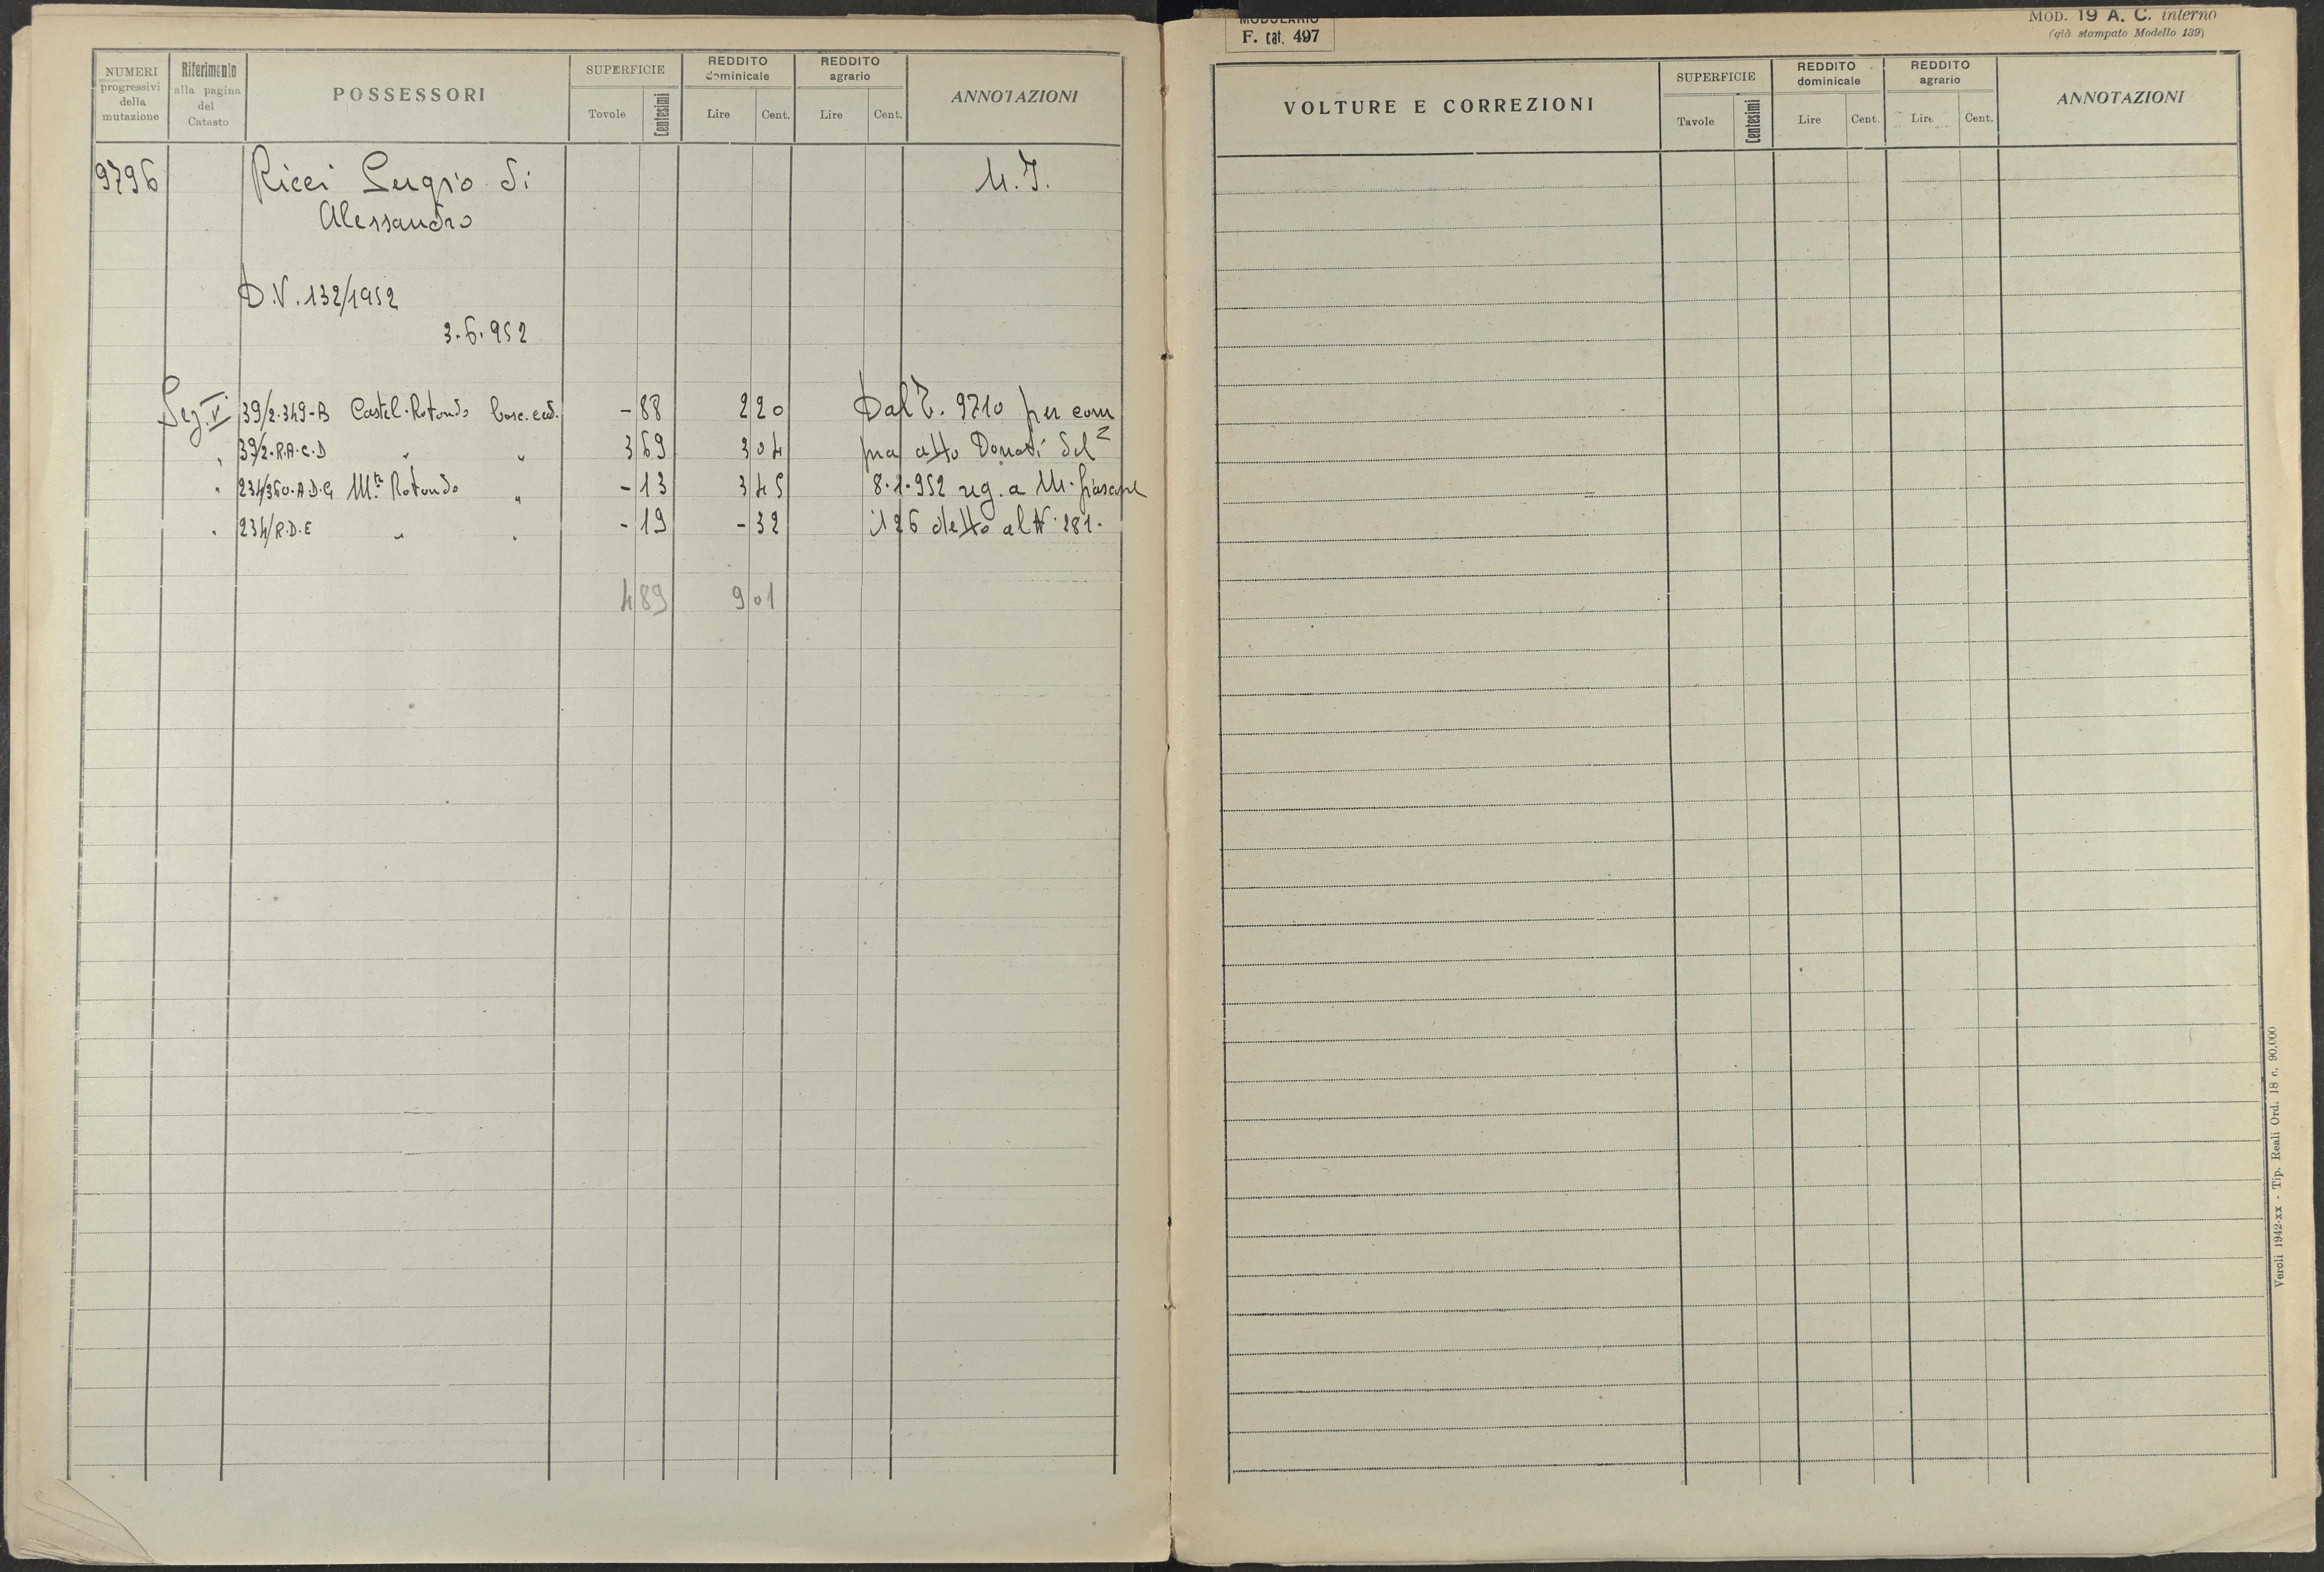 NUMERI progressivi della mutazione
Riferimento alla pagina del Catasto
POSSESSORI
SUPERFICIE
Tovole Centesimi
REDDITO dominicale
Lire Cent.
REDDITO agrario
Lire Cent.
ANNOTAZIONI
9796 Ricci Sergio di M.I.
Alessandro
D.V. 132/1952
3.6.952
Sez. V 39/2-349-B Castel-Rotondo bosc. ced. -88 2 20 Dal T. 9710 per com
" 39/2-R.A.C.D " " 3 69 3 04 pra atto Donati del
" 234/360-A.D.G Mte Rotondo " -13 3 45 8.1.952 reg. a M.
" 234/R.D.E " " -19 -32 126 detto al N. 281.
4 89 9 01
MODULARIO
F. cat. 497
MOD. 19 A. C. interno
(già stampato Modello 139)
VOLTURE E CORREZIONI
SUPERFICIE
Tavole Centesimi
REDDITO dominicale
Lire Cent.
REDDITO agrario
Lire Cent.
ANNOTAZIONI
Veroli 1942-xx - Tip. Reali Ord. 18 c. 90.000